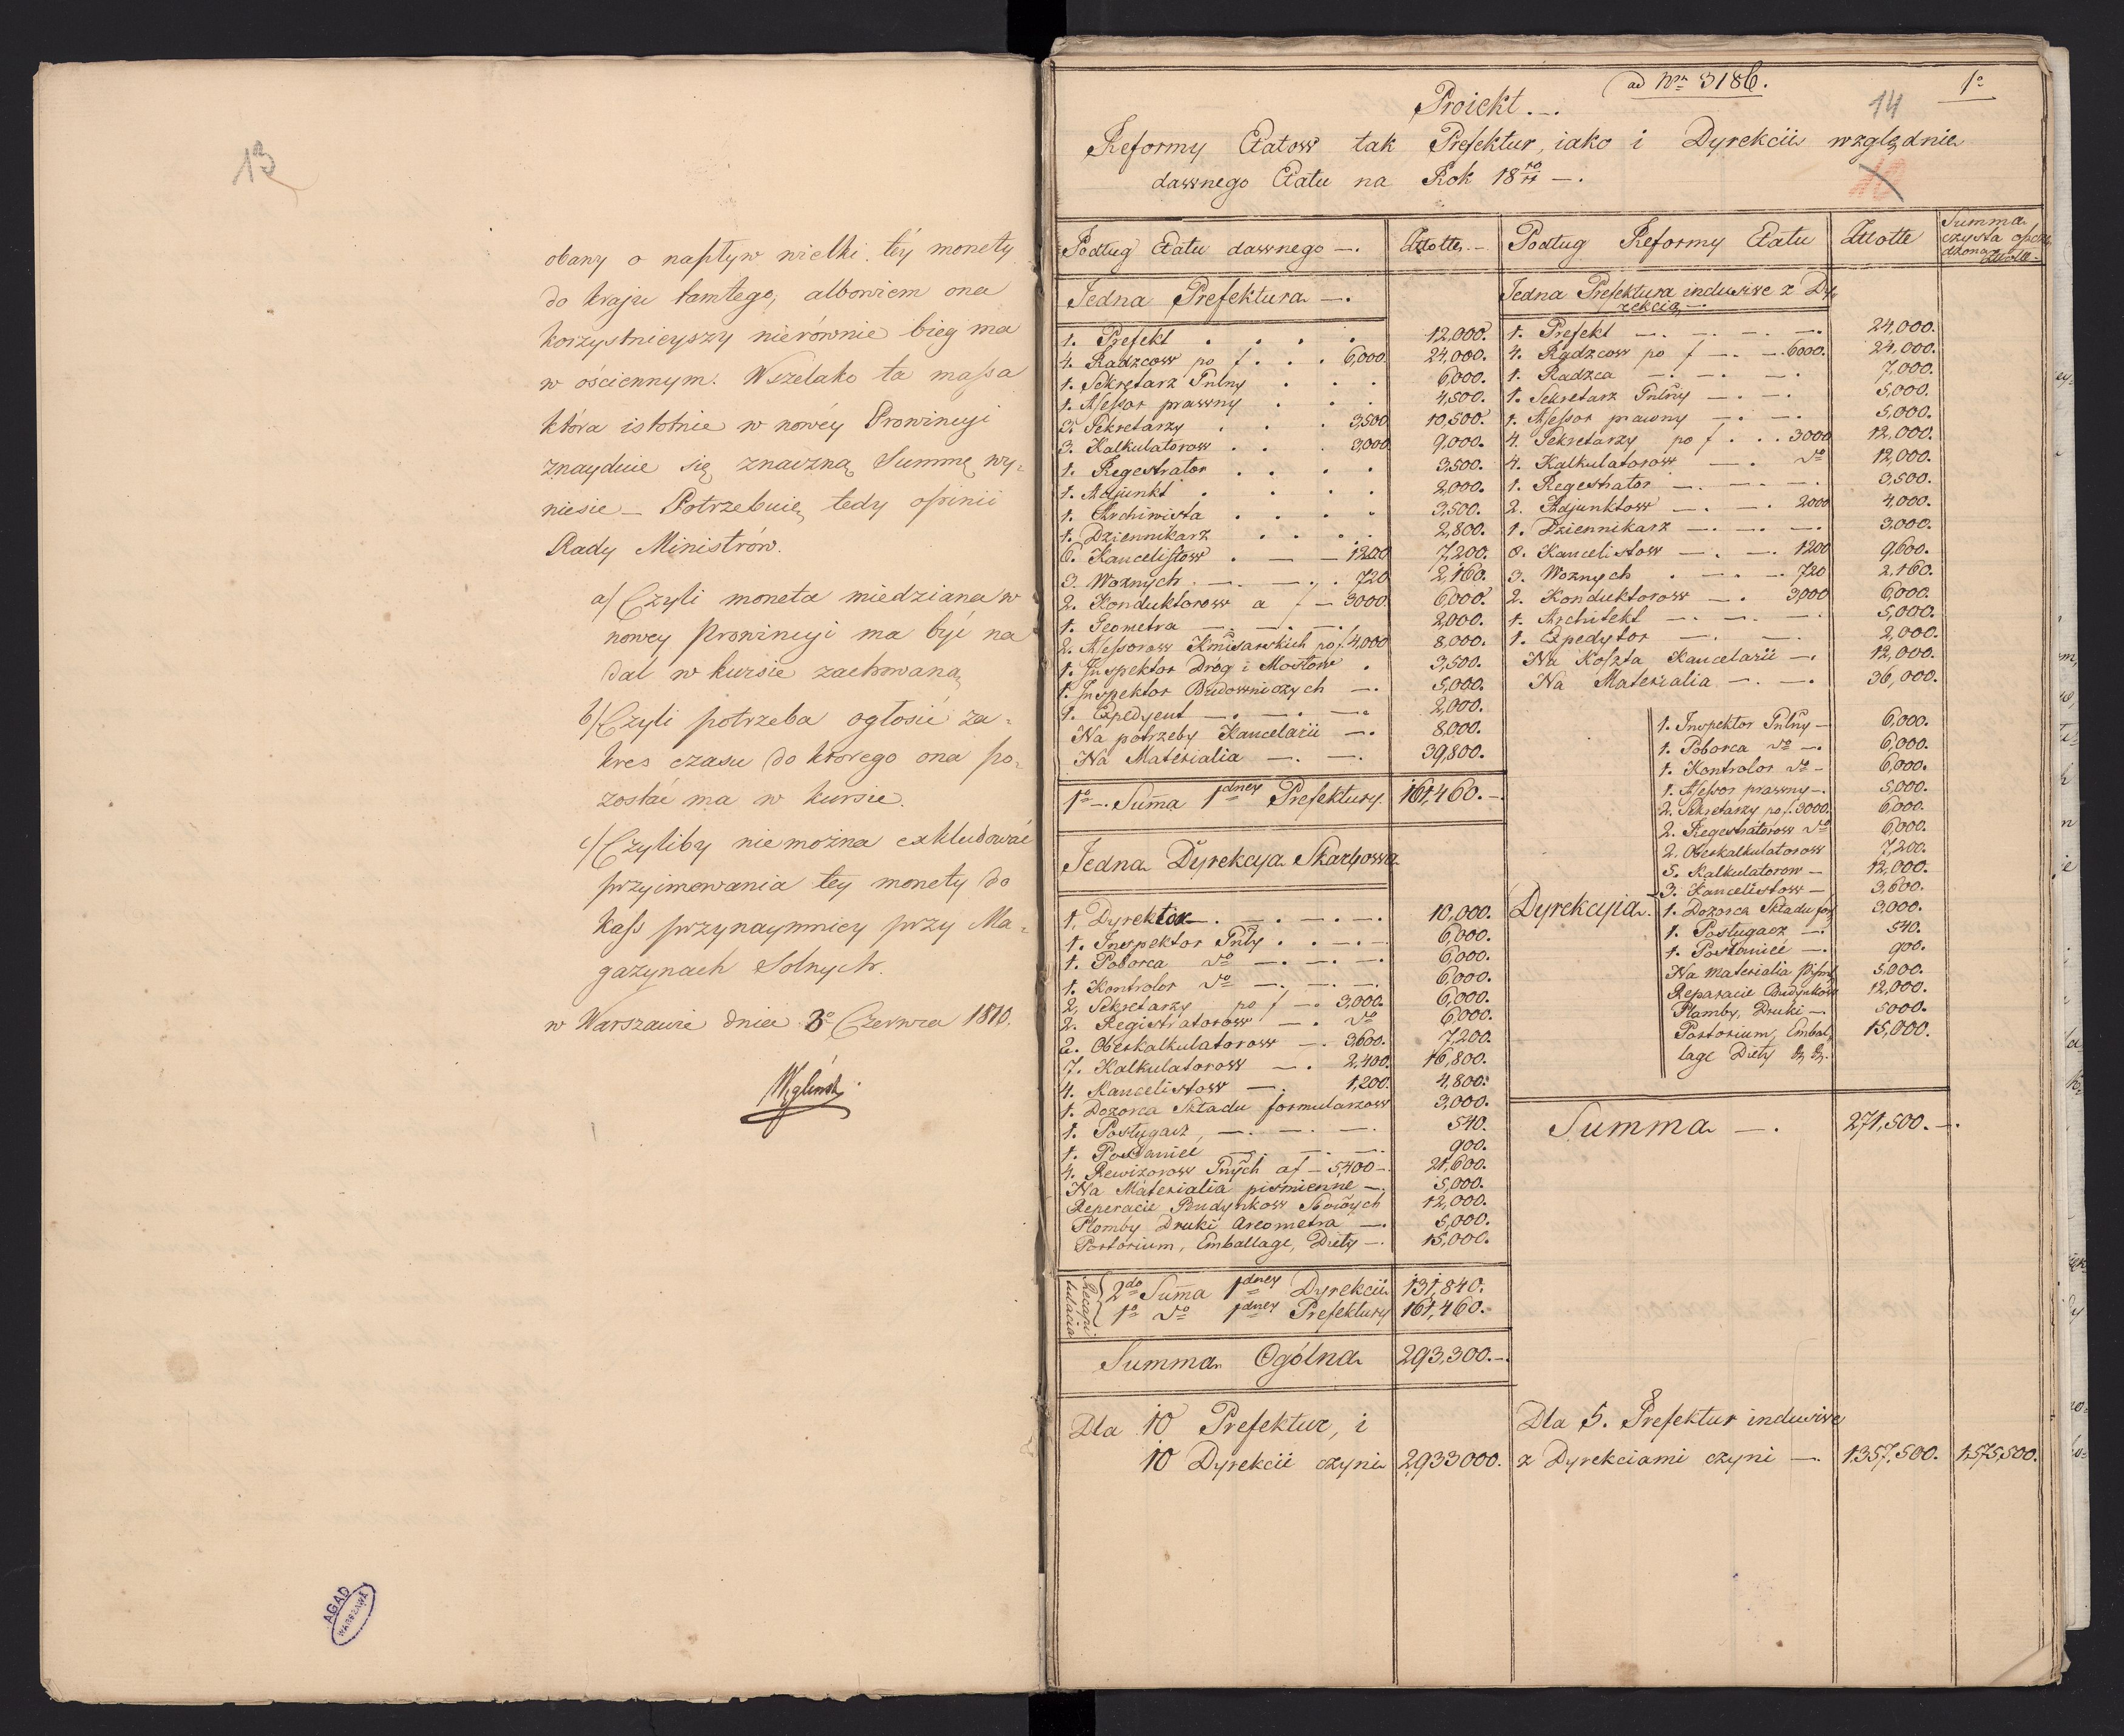 13
obawy o napływ wielki téy monety
do kraju tamtego, albowiem ona
korzystnieyszy nierównie bieg ma
w ościennym. Wszelako ta massa
która istotnie w nowéy Prowincyi
znayduie się znaczną Summę wy=
niesie – Potrzebuię tedy opinii
Rady Ministrów.
a/ Czyli moneta miedziana w
nowey Prowincyi ma być na
dal w kursie zachowana
b/ Czyli potrzeba ogłosić za=
kres czasu do ktorego ona po=
zostać ma w kursie.
c/ Czyliby nie można exkludować
przyimowania tey monety do
kass przynaymniey przy Ma=
gazynach Solnych.
w Warszawie dnia 3º Czerwca 1810.
Węgliński
AGAD
WARSZAWA
ad Nrn 3186.
1º
14
Proiekt.
Reformy Etatow tak Prefektur, iako i Dyrekcii względnie
dawnego Etatu na Rok 18 10/11 —.
Podług Etatu dawnego —. Złotte. — Podług Reformy Etatu Złotte Summa czysta oszczę dzona Złotte —
Jedna Prefektura —. Jedna Prefektura inclusive z Dy=
rekcią —.
1. Prefekt . . . . 12,000. 1. Prefekt — . — . 24,000.
4. Radzcow po f . . . 6,000 24,000. 4. Radzcow po f — . — 6000. 24,000.
1. Sekretarz Gnlny . . . 6,000. 1. Radzca — . — . 7,000.
1. Assessor prawny . . . 4,500. 1. Sekretarz Gnlny — . — . 5,000.
3. Sekretarzy . . . 3,500 10,500. 1. Assessor prawny — . — . 5,000.
3. Kalkulatorow . . . 3,000 9,000. 4. Sekretarzy po f . . . 3000 12,000.
1. Regestrator . . . . 3,500. 4. Kalkulatorow — . dº 12,000.
1. Adjunkt . . . . 2,000. 1. Regestrator — . — . 3,500.
1. Archiwista . . . . 3,500. 2. Adjunktow — . — . 2000 4,000.
1. Dziennikarz . . . . 2,800. 1. Dziennikarz — . — . 3,000.
6. Kancelistow . — — 1200 7,200. 8. Kancelistow — . — . 1200 9,600.
3. Woznych . — . — . 720 2,160. 3. Woznych . — . — . 720 2,160.
2. Konduktorow a f — 3000. 6,000. 2. Konduktorow — . 3,000 6,000.
1. Geometra — . — . — . 2,000. 1. Architekt — . — . 5,000.
2. Assessorow Kmisarskich po f. 4,000 8,000. 1. Expedytor — . — . 2,000.
1. Inspektor Drog i Mostow . 3,500. Na Koszta Kancelarii — . 12,000.
1. Inspektor Budowniczych — . 5,000. Na Materialia — . — . 36,000.
1. Expedyent — . — . — . 2,000.
Na potrzeby Kancelarii — . 8,000.
Na Materialia — . — . 39,800.
1º — . Suma 1dney Prefektury. 161,460. —
Jedna Dyrekcya Skarbowa
1. Dyrektor — . — . — . 10,000.
1. Inspektor Gnlny . . — . — 6,000.
1. Poborca dº — . — . — . 6,000.
1. Kontrolor dº — . — . — . 6,000.
2. Sekretarzy po f — . 3,000. 6,000.
2. Registratorow — . dº 6,000.
2. Oberkalkulatorow — . 3,600. 7,200.
7. Kalkulatorow — . 2,400. 16,800.
4. Kancelistow — . 1,200. 4,800.
1. Dozorca Składu formularzow 3,000.
1. Posługacz — . — . — . 540.
1. Posłaniec — . — . — . 900.
4. Rewizorow Gnych a f — 5,400 — . 21,600.
Na Materialia pismienne — . 5,000.
Reperacie Budynkow 12,000.
Plomby Druki Areometra — . 5,000.
Portorium, Emballage, Diety — . 15,000.
Recapitulacia
2do Suma 1dney Dyrekcii 131,840.
1º dº 1dney Prefektury 161,460. —
Summa Ogólna 293,300. — .
Dla 10 Prefektur, i
10 Dyrekcii czyni 2,933000.
Dyrekcyia.
1. Inspektor Gnlny — 6,000.
1. Poborca dº — . 6,000.
1. Kontrolor dº — 6,000.
1. Assessor prawny — . 5,000.
2. Sekretarzy po f. 3000. 6,000.
2. Regestratorow dº 6,000.
2. Oberkalkulatorow 7,200.
5. Kalkulatorow — 12,000.
3. Kancelistow — 3,600.
1. Dozorca Składu for. 3,000.
1. Posługacz — . 540.
1. Posłaniec — . 900.
Na Materialia Piśm. 5,000.
Reparacie Budynkow 12,000.
Plamby, Druki — . 5000.
Portorium, Embal= 15,000.
lage Diety &c &c.
Summa — . 271,500. — .
Dla 5. Prefektur inclusive
z Dyrekciami czyni — . 1,357,500. 1,575,500.